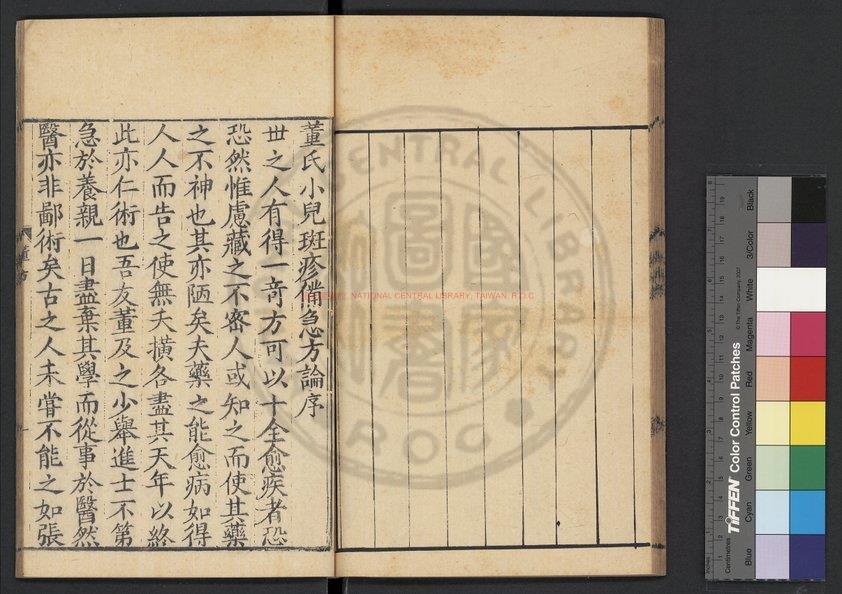 董氏小兒斑疹備急方論序
世之人有得一竒方可以十全愈疾者恐
恐然惟慮藏之不密人或知之而使其藥
之不神也其亦陋矣夫藥之能愈病如得
人人而告之使無夭橫各盡其天年以終
此亦仁術也吾友董及之少舉進士不第
急於養親一日盡棄其學而從事於醫然
醫亦非鄙術矣古之人未嘗不能之如張
NATIONAL CENTRAL LIBRARY, TAIWAN, R.O.C
圖
書
TIFFEN Color Control Patches
© The Tiffen Company, 2007
Centimetres
Inches
Blue
Cyan
Green
Yellow
Red
Magenta
White
3/Color
Black